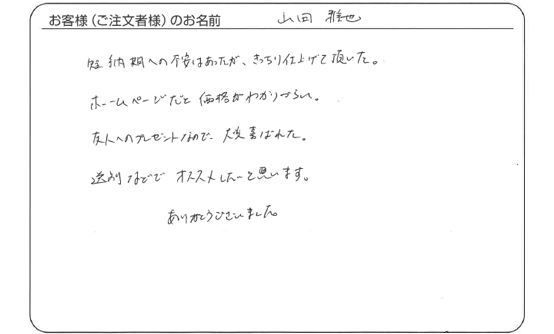 お客様（ご注文者様）のお名前　山田 雅也
短納期への不安はあったが、きっちり仕上げて頂いた。
ホームページだと価格がわかりづらい。
友人へのプレゼントなので、大変喜ばれた。
送別などでオススメしたいと思います。
ありがとうございました。